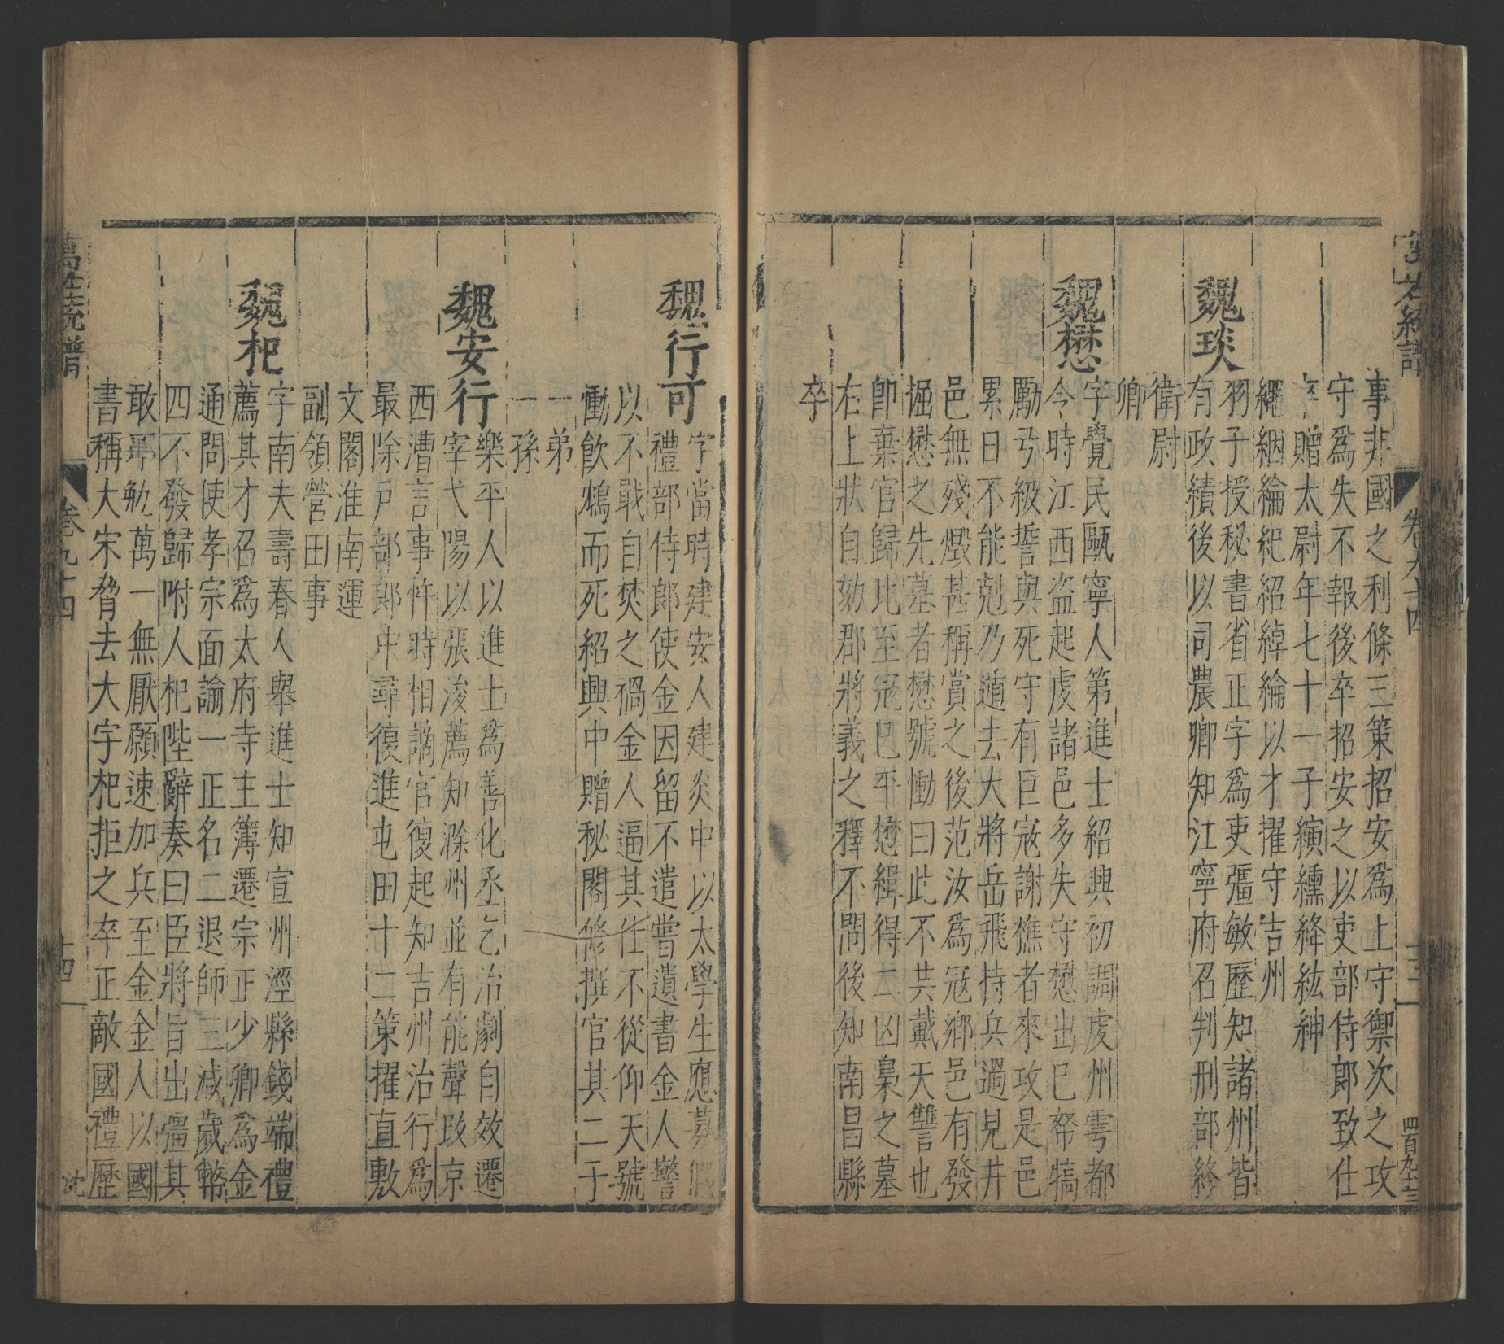 事非國之利條三策招安爲上守禦次之攻
守爲失不報後卒招安之以吏部侍郎致仕
卒贈太尉年七十一子縯纁絳紘紳
繩絪綸紀紹綽綸以才擢守吉州
羽子授秘書省正字爲吏彊敏歷知諸州皆
魏琰有政績後以司農卿知江寧府召判刑部終
衛尉
卿
魏懋字覺民甌寧人第進士紹興初調虔州雩都
令時江西盗起虔諸邑多失守懋出巳帑犒
勵弓級誓與死守有巨冦謝樵者來攻是邑
累日不能剋乃遁去大將岳飛持兵過見井
邑無殘燬甚稱賞之後范汝爲冦鄉邑有發
掘懋之先墓者懋號慟曰此不共戴天讐也
卽棄官歸比至冦巳平懋緝得二凶梟之墓
右上狀自劾郡將義之釋不問後知南昌縣
卒
魏行可字當時建安人建炎中以太學生應募假
禮部侍郎使金因留不遣嘗遺書金人警
以不戢自焚之禍金人逼其仕不從仰天號
慟飲鴆而死紹興中贈秘閣修撰官其二子
一弟
一孫
魏安行樂平人以進士爲善化丞乞治劇自效遷
宰弋陽以張浚薦知滁州並有能聲改京
西漕言事忤時相謫官復起知吉州治行爲
最除戶部郎中尋復進屯田十二策擢直敷
文閣淮南運
副領營田事
魏杞字南夫壽春人舉進士知宣州涇縣錢端禮
薦其才召爲太府寺主簿遷宗正少卿爲金
通問使孝宗面諭一正名二退師三减歲幣
四不發歸附人杞陛辭奏曰臣將旨出彊其
敢不勉萬一無厭願速加兵至金金人以國
書稱大宋脅去大字杞拒之卒正敵國禮歷
萬姓統譜
卷九十四
十四